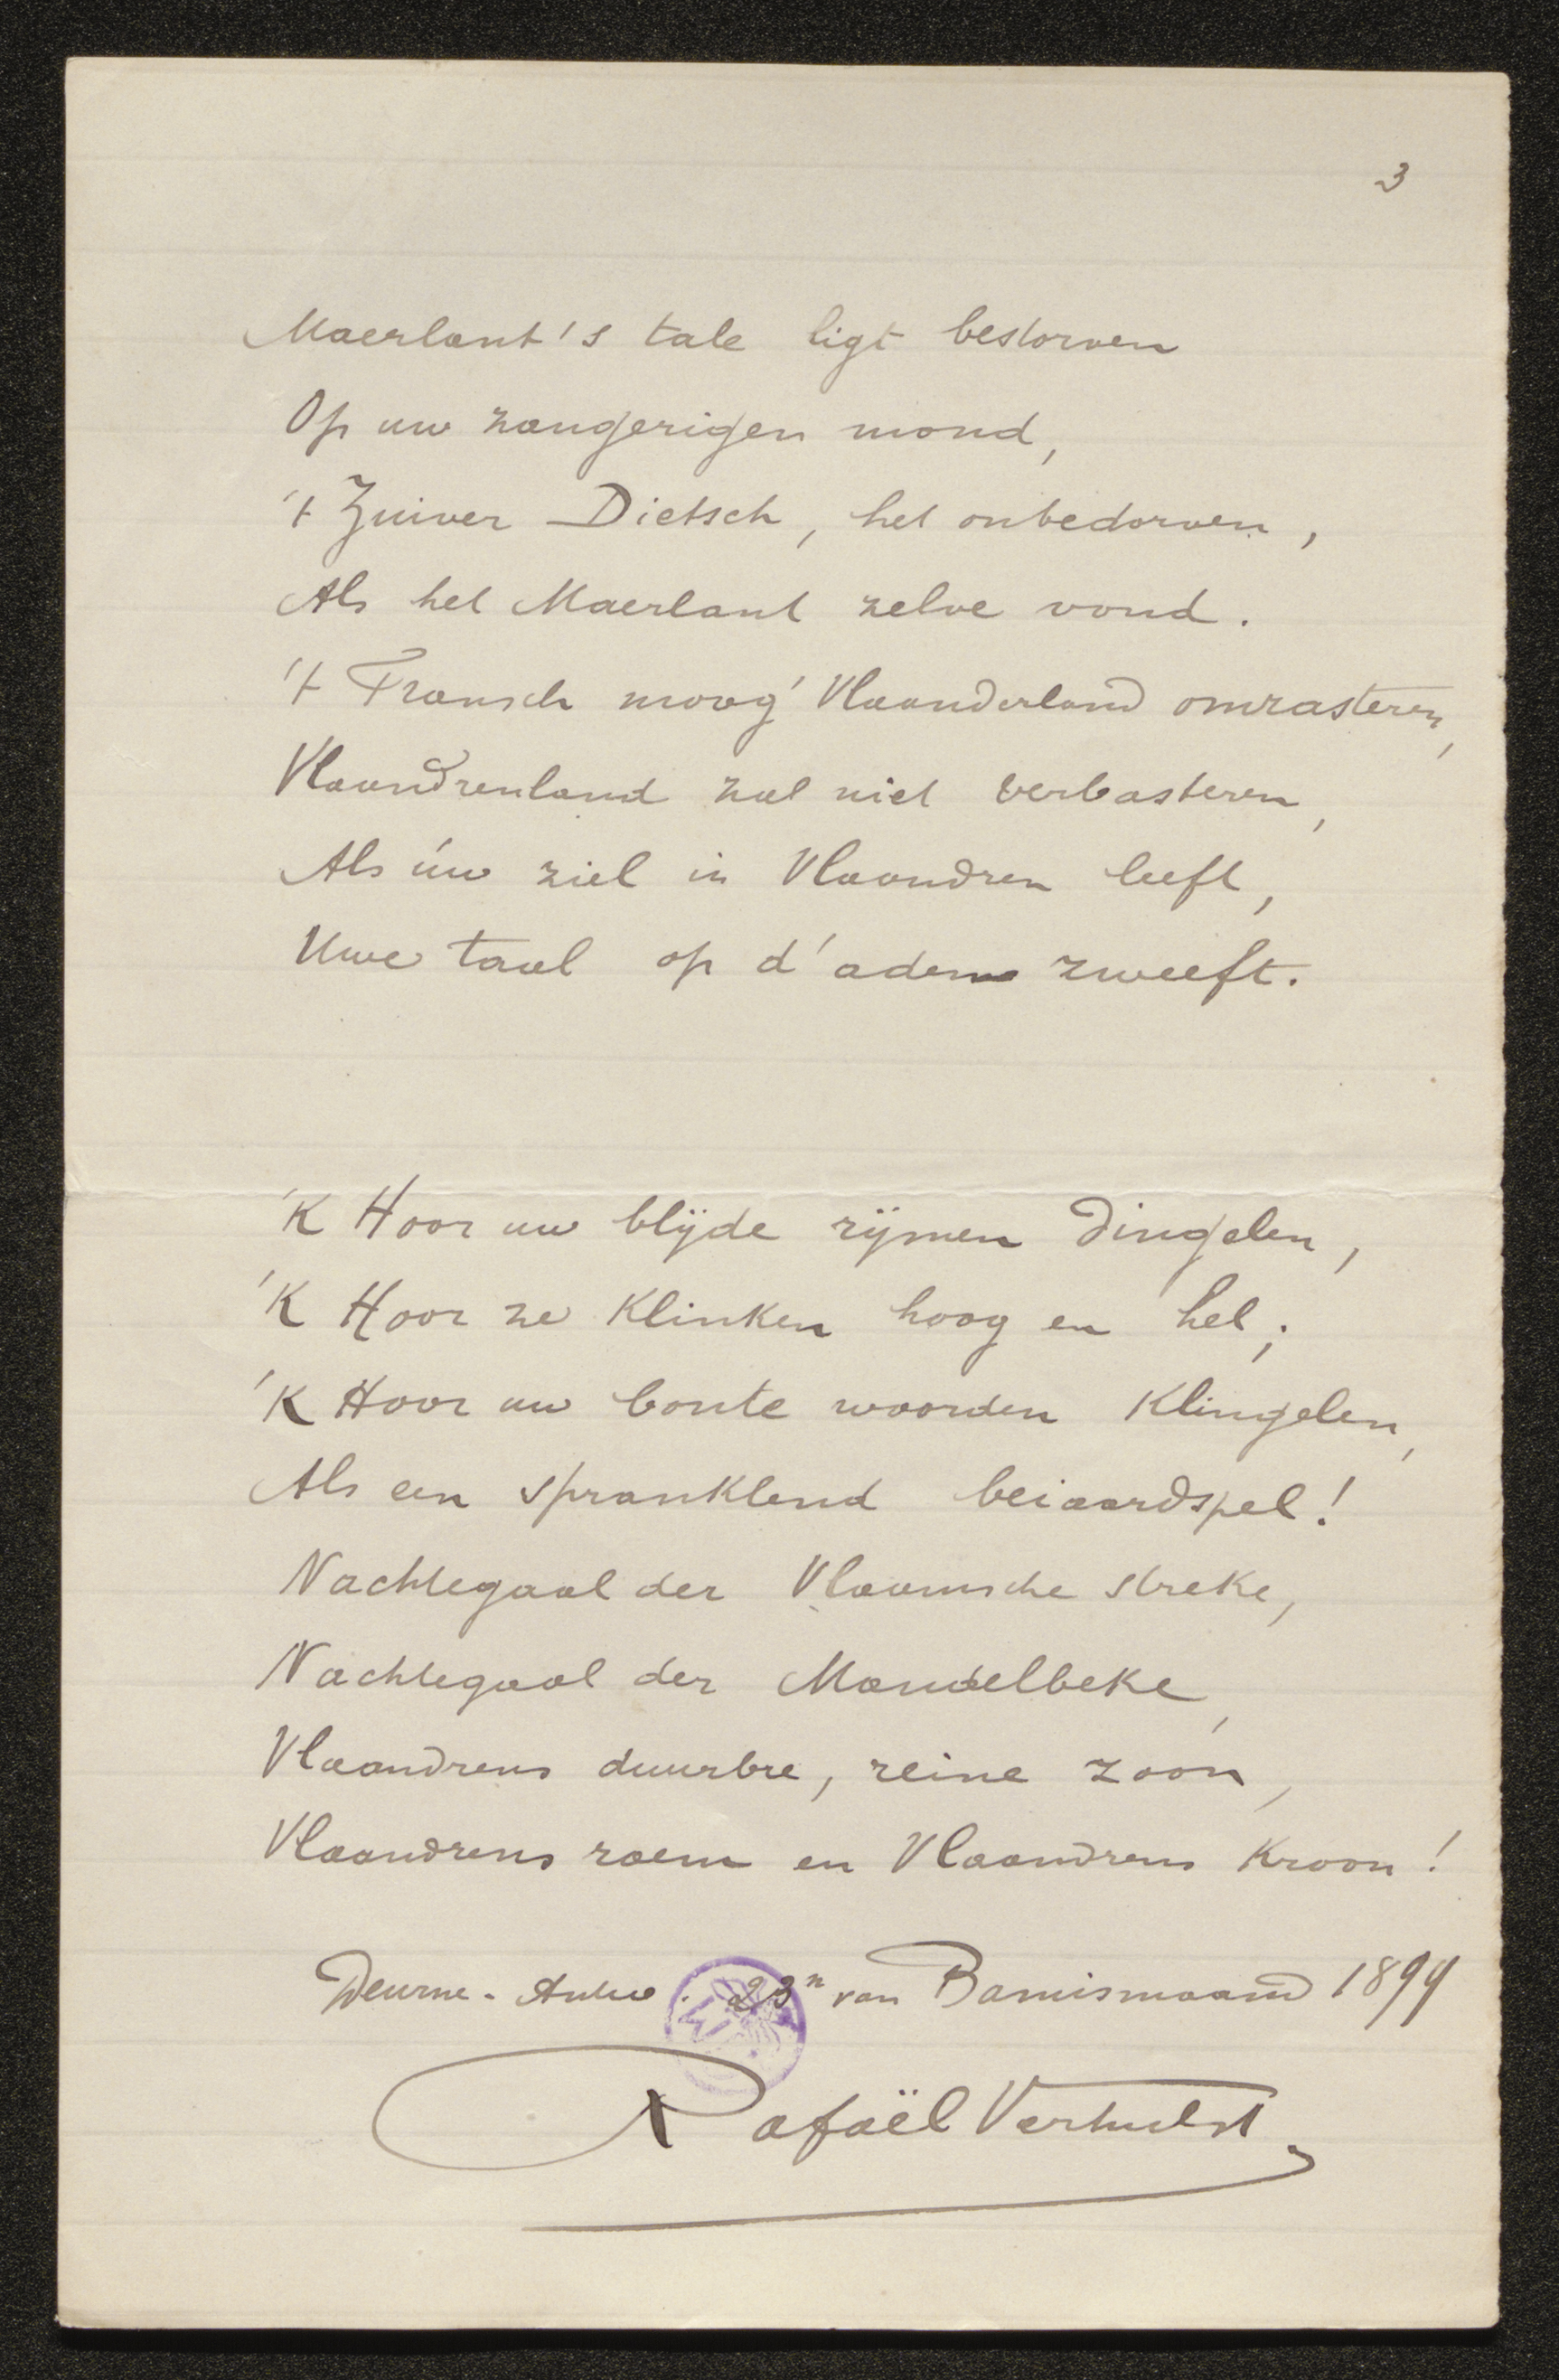 3
Maerlant's tale ligt bestorven
Op uw zangerigen mond,
't Zuiver Dietsch, het onbedorven,
Als het Maerlant zelve vond.
't Fransch moog' Vlaanderland omrasteren,
Vlaandrenland zal niet verbasteren,
Als úw ziel in Vlaandren leeft,
Uwe taal op d'adem zweeft.
'K Hoor uw blijde rijmen dingelen,
'K Hoor ze klinken hoog en hel;
'K Hoor uw bonte woorden klingelen,
Als een spranklend beiaardspel!
Nachtegaal der Vlaamsche streke,
Nachtegaal der Mandelbeke,
Vlaandrens duurbre, reine zoon,
Vlaandrens roem en Vlaandrens kroon!
Deurne-Antw. 23n van Bamismaand 1899
Rafaël Verhulst